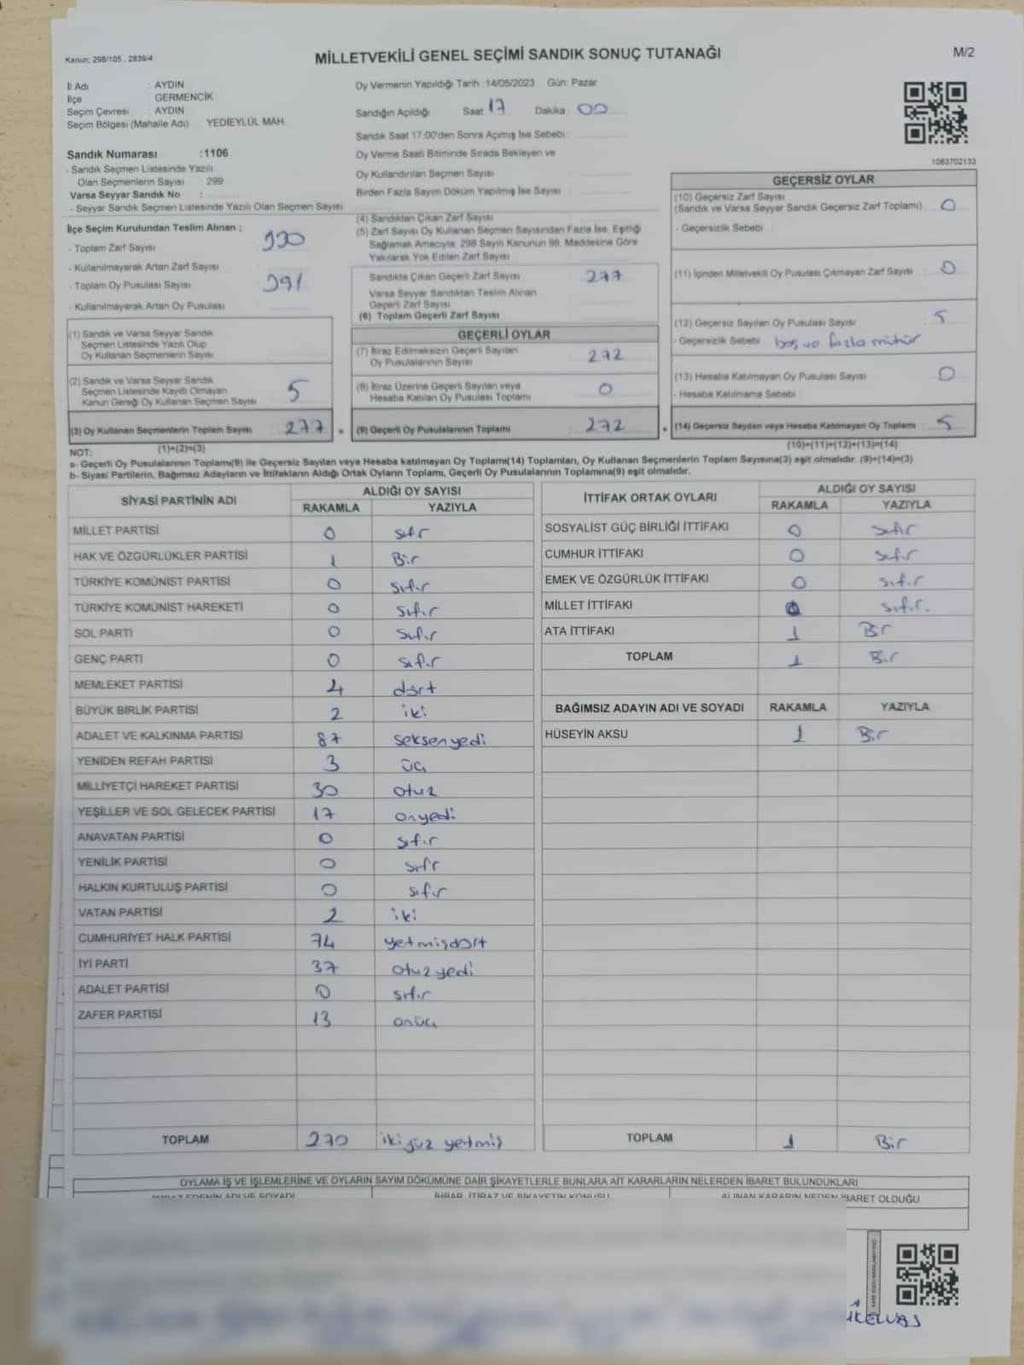 Kanun: 298/105 , 2839/4
MİLLETVEKİLİ GENEL SEÇİMİ SANDIK SONUÇ TUTANAĞI
M/2
İl Adı : AYDIN
İlçe GERMENCİK
Seçim Çevresi : AYDIN
Seçim Bölgesi (Mahalle Adı) : YEDİEYLÜL MAH.
Sandık Numarası :1106
- Sandık Seçmen Listesinde Yazılı
Olan Seçmenlerin Sayısı : 299
Varsa Seyyar Sandık No :
- Seyyar Sandık Seçmen Listesinde Yazılı Olan Seçmen Sayısı
Oy Vermenin Yapıldığı Tarih :14/05/2023 Gün: Pazar
Sandığın Açıldığı Saat: 17 Dakika : 00
Sandık Saat 17:00'den Sonra Açılmış İse Sebebi :
Oy Verme Saati Bitiminde Sırada Bekleyen ve
Oy Kullandırılan Seçmen Sayısı
Birden Fazla Sayım Döküm Yapılmış İse Sayısı
1083702133
İlçe Seçim Kurulundan Teslim Alınan :
- Toplam Zarf Sayısı
- Kullanılmayarak Artan Zarf Sayısı
- Toplam Oy Pusulası Sayısı
- Kullanılmayarak Artan Oy Pusulası
(1) Sandık ve Varsa Seyyar Sandık
Seçmen Listesinde Yazılı Olup
Oy Kullanan Seçmenlerin Sayısı
(2) Sandık ve Varsa Seyyar Sandık
Seçmen Listesinde Kaydı Olmayan
Kanun Gereği Oy Kullanan Seçmen Sayısı 5
(3) Oy Kullanan Seçmenlerin Toplam Sayısı 277
(1)+(2)=(3)
(4) Sandıktan Çıkan Zarf Sayısı
(5) Zarf Sayısı Oy Kullanan Seçmen Sayısından Fazla İse, Eşitliği
Sağlamak Amacıyla; 298 Sayılı Kanunun 98. Maddesine Göre
Yakılarak Yok Edilen Zarf Sayısı
Sandıkta Çıkan Geçerli Zarf Sayısı 277
Varsa Seyyar Sandıktan Teslim Alınan
Geçerli Zarf Sayısı
(6) Toplam Geçerli Zarf Sayısı
GEÇERLİ OYLAR
(7) İtiraz Edilmeksizin Geçerli Sayılan
Oy Pusulalarının Sayısı 272
(8) İtiraz Üzerine Geçerli Sayılan veya
Hesaba Katılan Oy Pusulası Toplamı 0
(9) Geçerli Oy Pusulalarının Toplamı 272
GEÇERSİZ OYLAR
(10) Geçersiz Zarf Sayısı
(Sandık ve Varsa Seyyar Sandık Geçersiz Zarf Toplamı) 0
- Geçersizlik Sebebi
(11) İçinden Milletvekili Oy Pusulası Çıkmayan Zarf Sayısı 0
(12) Geçersiz Sayılan Oy Pusulası Sayısı 5
- Geçersizlik Sebebi boş ve fazla mühür
(13) Hesaba Katılmayan Oy Pusulası Sayısı 0
- Hesaba Katılmama Sebebi
(14) Geçersiz Sayılan veya Hesaba Katılmayan Oy Toplamı 5
(10)+(11)+(12)+(13)=(14)
NOT:
a- Geçerli Oy Pusulalarının Toplamı(9) ile Geçersiz Sayılan veya Hesaba katılmayan Oy Toplamı(14) Toplamları, Oy Kullanan Seçmenlerin Toplam Sayısına(3) eşit olmalıdır. (9)+(14)=(3)
b- Siyasi Partilerin, Bağımsız Adayların ve İttifakların Aldığı Ortak Oyların Toplamı, Geçerli Oy Pusulalarının Toplamına(9) eşit olmalıdır.
SİYASİ PARTİNİN ADI ALDIĞI OY SAYISI
RAKAMLA YAZIYLA
MİLLET PARTİSİ 0 sıfır
HAK VE ÖZGÜRLÜKLER PARTİSİ 1 Bir
TÜRKİYE KOMÜNİST PARTİSİ 0 sıfır
TÜRKİYE KOMÜNİST HAREKETİ 0 sıfır
SOL PARTİ 0 sıfır
GENÇ PARTİ 0 sıfır
MEMLEKET PARTİSİ 4 dört
BÜYÜK BİRLİK PARTİSİ 2 iki
ADALET VE KALKINMA PARTİSİ 87 seksenyedi
YENİDEN REFAH PARTİSİ 3 üç
MİLLİYETÇİ HAREKET PARTİSİ 30 otuz
YEŞİLLER VE SOL GELECEK PARTİSİ 17 onyedi
ANAVATAN PARTİSİ 0 sıfır
YENİLİK PARTİSİ 0 sıfır
HALKIN KURTULUŞ PARTİSİ 0 sıfır
VATAN PARTİSİ 2 iki
CUMHURİYET HALK PARTİSİ 74 yetmişdört
İYİ PARTİ 37 otuzyedi
ADALET PARTİSİ 0 sıfır
ZAFER PARTİSİ 13 onüç
TOPLAM 270 ikiyüz yetmiş
İTTİFAK ORTAK OYLARI ALDIĞI OY SAYISI
RAKAMLA YAZIYLA
SOSYALİST GÜÇ BİRLİĞİ İTTİFAKI 0 sıfır
CUMHUR İTTİFAKI 0 sıfır
EMEK VE ÖZGÜRLÜK İTTİFAKI 0 sıfır
MİLLET İTTİFAKI 0 sıfır.
ATA İTTİFAKI 1 Bir
TOPLAM 1 Bir
BAĞIMSIZ ADAYIN ADI VE SOYADI RAKAMLA YAZIYLA
HÜSEYİN AKSU 1 Bir
TOPLAM 1 Bir
OYLAMA İŞ VE İŞLEMLERİNE VE OYLARIN SAYIM DÖKÜMÜNE DAİR ŞİKAYETLERLE BUNLARA AİT KARARLARIN NELERDEN İBARET BULUNDUKLARI